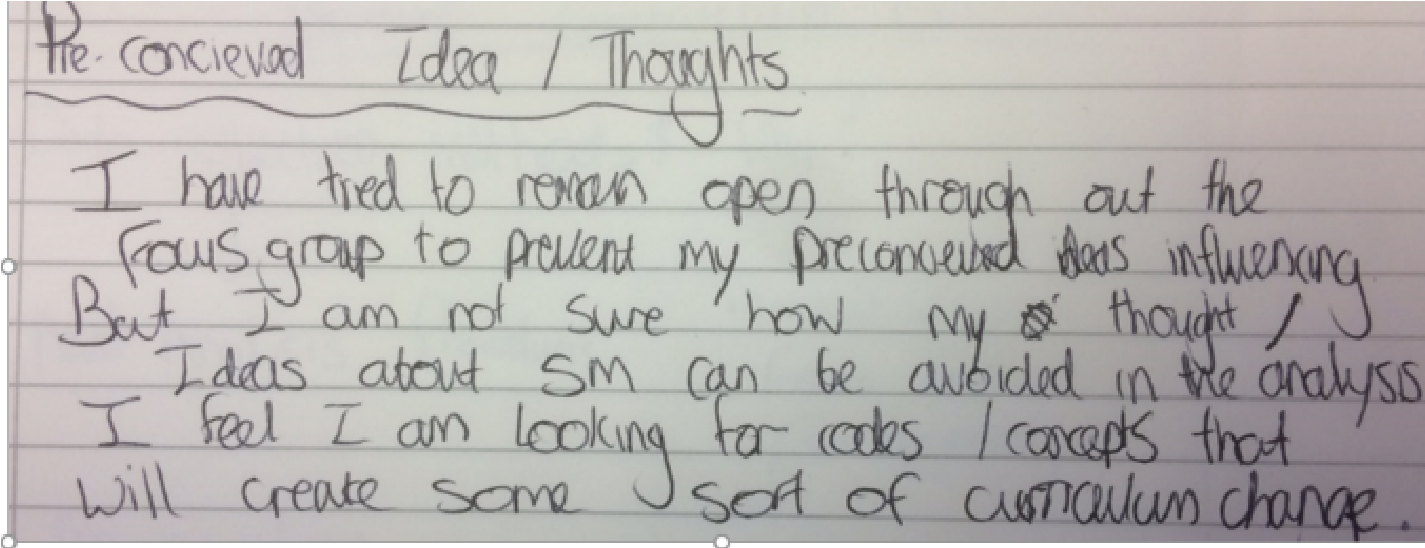 Pre-concieved Idea / Thoughts
I have tried to remain open through out the
Focus group to prevent my preconceived ideas influencing
But I am not sure how my thought /
Ideas about SM can be avoided in the analysis
I feel I am looking for codes / concepts that
will create some sort of curriculum change.